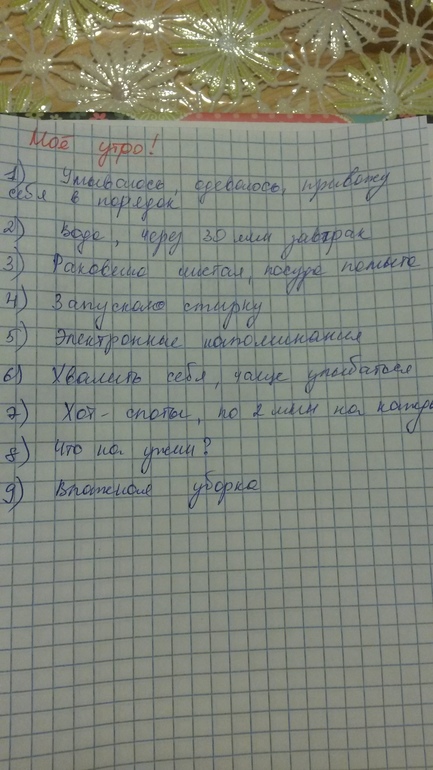 Моё утро!
1) Умываюсь, одеваюсь, привожу
себя в порядок
2) Вода, через 30 мин завтрак
3) Раковина чистая, посуда помыта
4) Запускаю стирку
5) Электронные напоминания
6) Хвалить себя, чаще улыбаться
7) Хот-споты, по 2 мин на
8) Что на ужин?
9) Влажная уборка